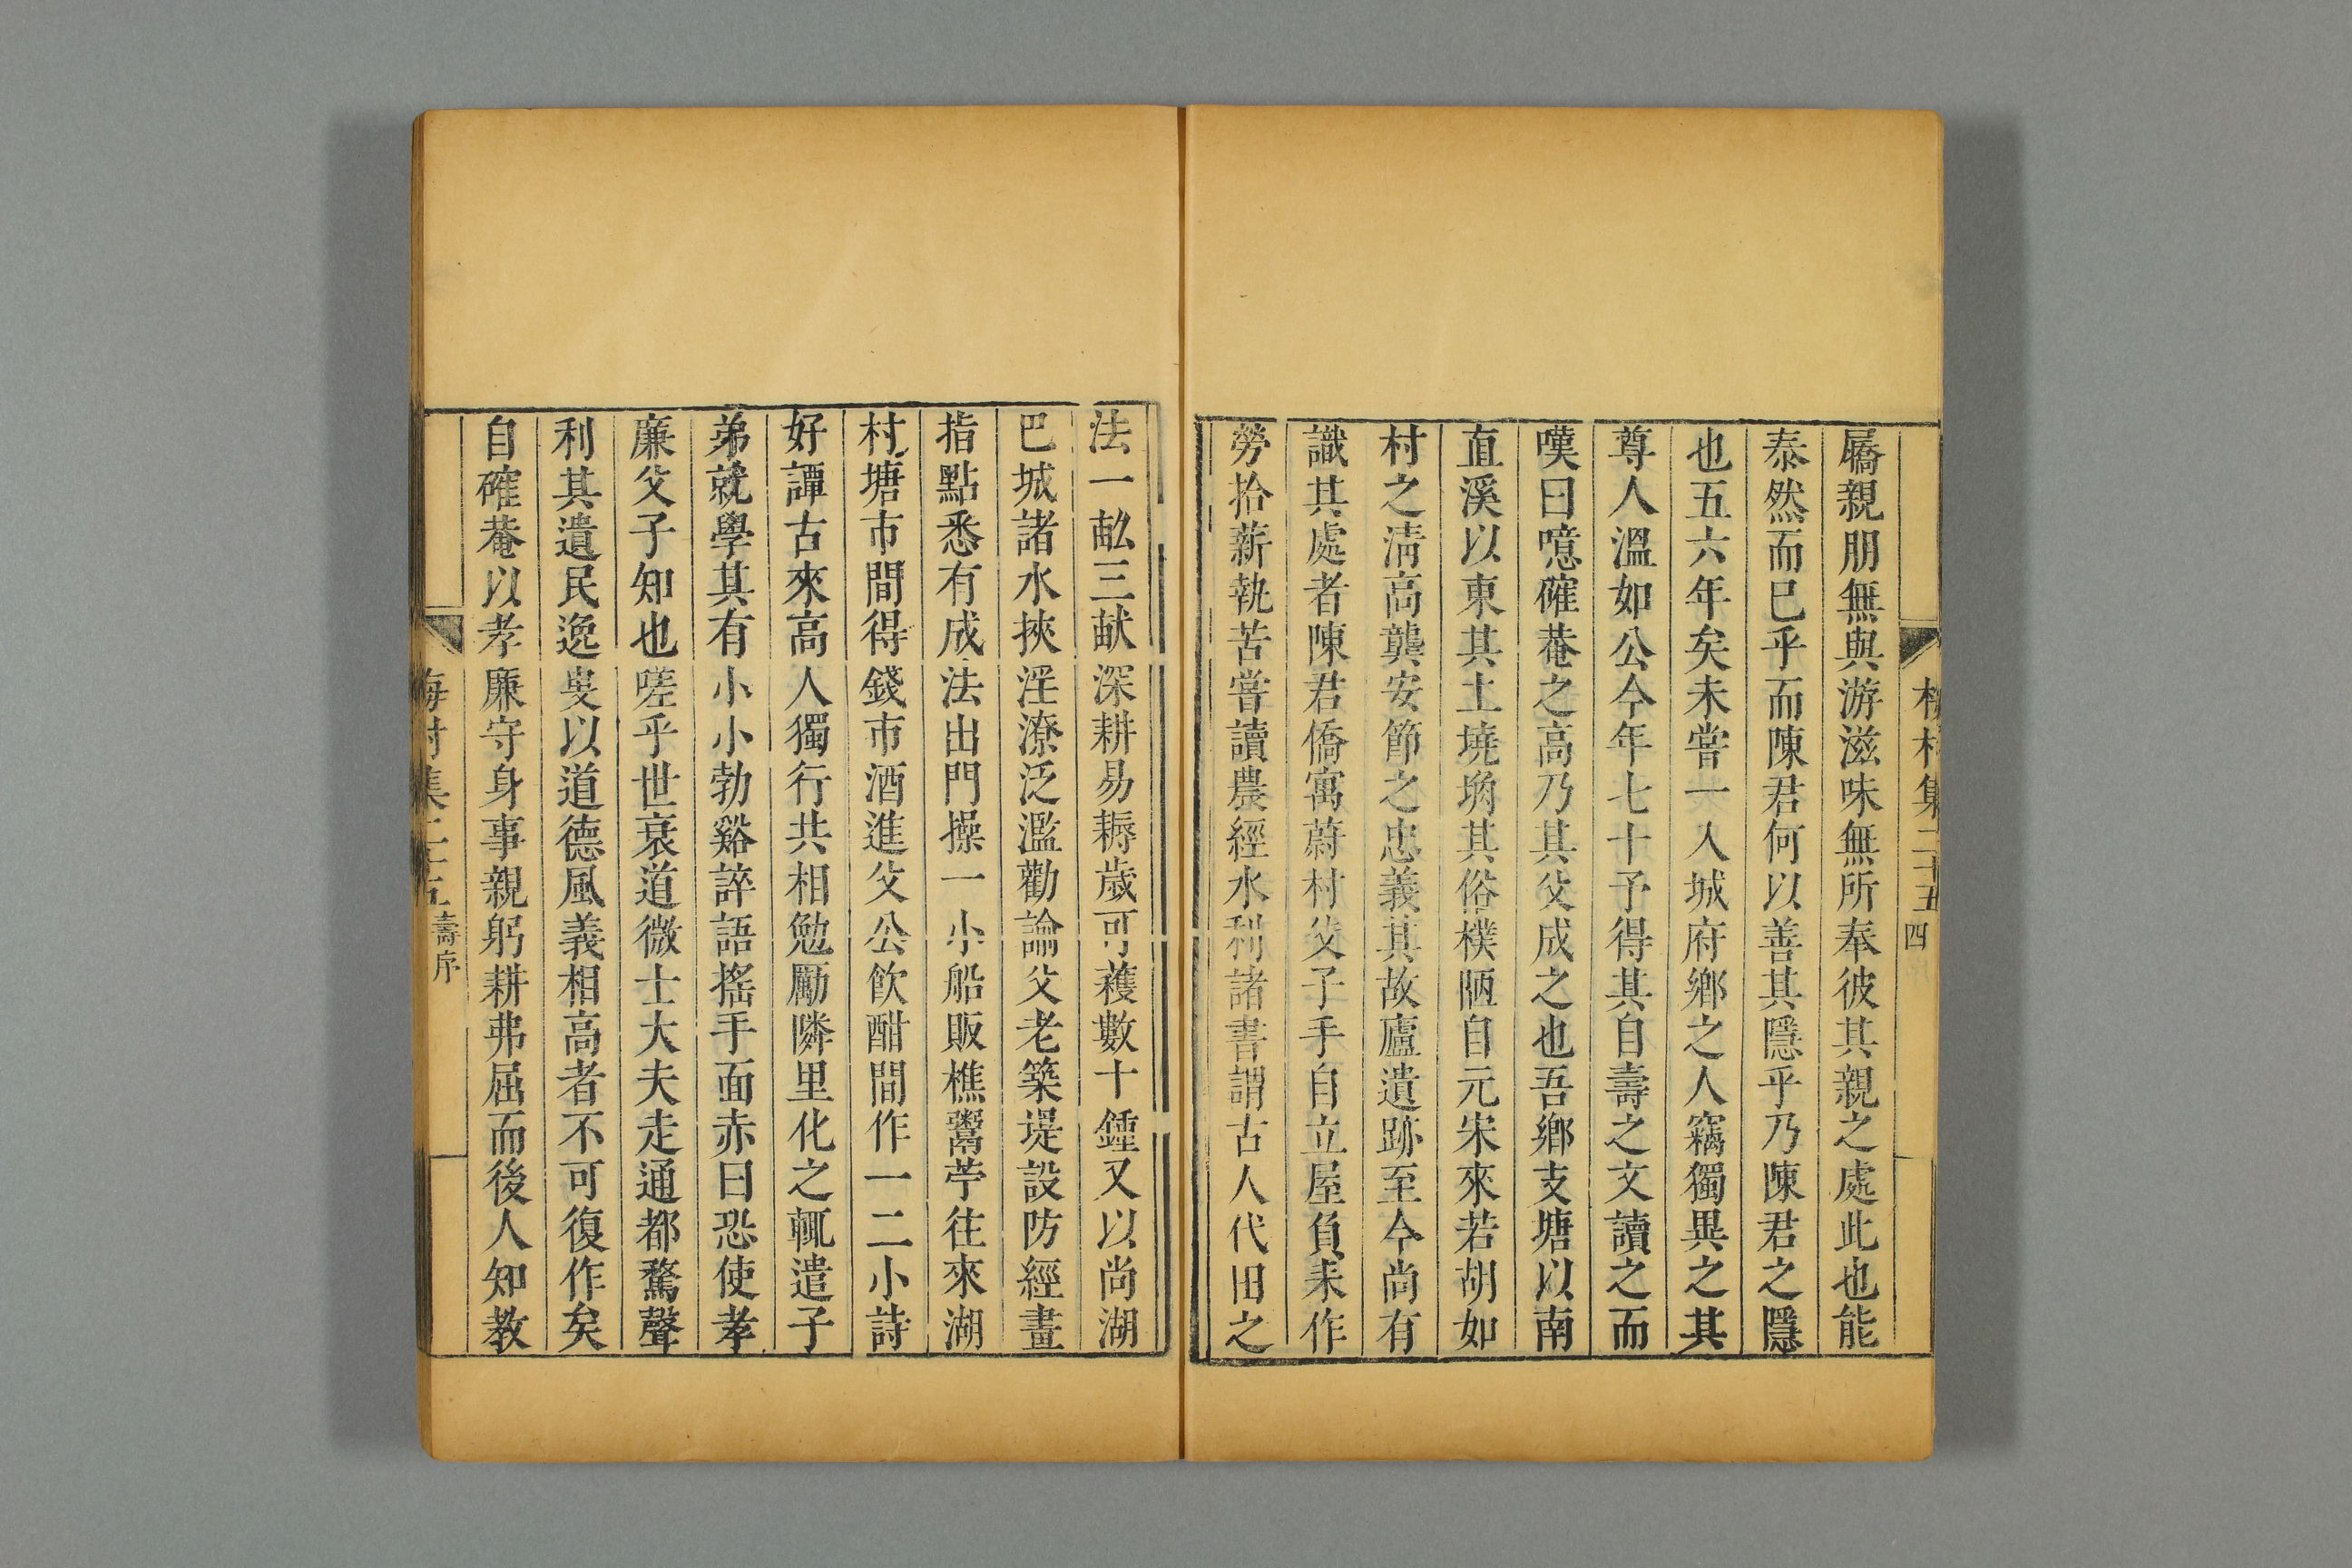 梅村集二十五 四
屩親朋無與游滋味無所奉彼其親之處此也能
泰然而已乎而陳君何以善其隱乎乃陳君之隱
也五六年矣未嘗一入城府鄉之人竊獨異之其
尊人溫如公今年七十予得其自壽之文讀之而
嘆曰噫確菴之高乃其父成之也吾鄉支塘以南
直溪以東其土墝埆其俗樸陋自元宋來若胡如
村之淸高龔安節之忠義其故廬遺跡至今尚有
識其處者陳君僑寓蔚村父子手自立屋負耒作
勞拾薪執苦嘗讀農經水利諸書謂古人代田之
法一畝三畎深耕易耨歲可穫數十鍾又以尚湖
巴城諸水挾淫潦泛濫勸諭父老築堤設防經畫
指點悉有成法出門操一小船販樵鬻苧往來湖
村塘市間得錢市酒進父公飲酣間作一二小詩
好譚古來高人獨行共相勉勵隣里化之輒遣子
弟就學其有小小勃谿誶語搖手面赤曰恐使孝
廉父子知也嗟乎世衰道微士大夫走通都騖聲
利其遺民逸叟以道德風義相高者不可復作矣
自確菴以孝廉守身事親躬耕弗屈而後人知教
梅村集二十五 壽序